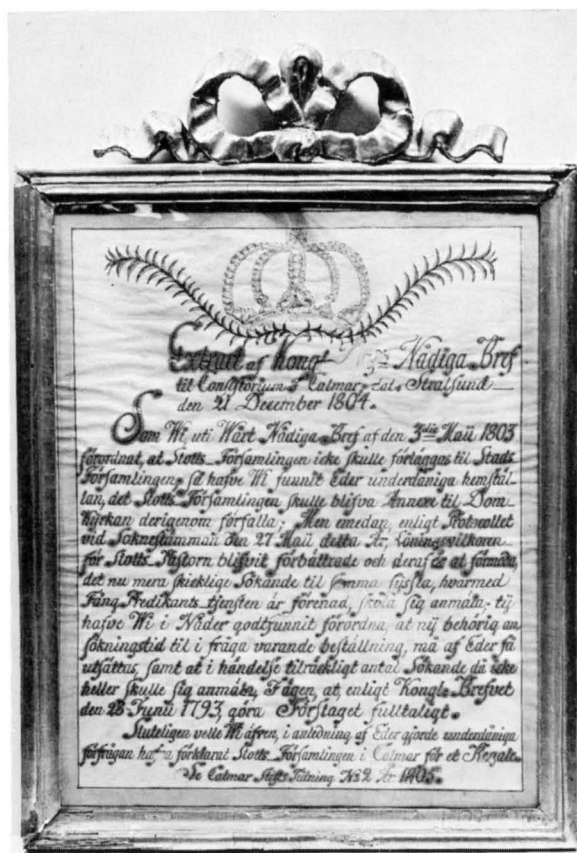 Extract af Kongl Nådiga Bref
til Consistorium i Calmar, dat. Stralsund
den 21 December 1804.
Som Wi, uti Wårt Nådiga Bref af den 3die Maii 1803
förordnat, at Slotts-Församlingen icke skulle förläggas til Stads
Församlingen, så hafve Wi funnit Eder underdåniga hemstäl-
lan, det Slotts-Församlingen skulle blifva Annex til Dom-
kyrkan derigenom förfalla; Men emedan, enligt Protocollet
vid Söknestämman den 27 Maii detta År, Löningsvilkoren
för Slotts-Pastorn blifvit förbättrade och deraf är at förmoda,
det nu mera skickelige Sökande til samma syssla, hvarmed
Fång-Predikants-tjensten är förenad, skola sig anmäla, ty
hafve Wi i Nåder godtfunnit förordna, at ny behörig an-
sökningstid til i fråga varande beställning, må af Eder få
utsättas, samt at i händelse tilräckligt antal Sökande då icke
heller skulle sig anmäla, Fågen, at, enligt Kongl. Brefvet
den 28 Junii 1793, göra Förslaget fulltaligt.
Sluteligen velle Wi äfven, i anledning af Eder gjorde underdåniga
förfrågan hafva förklarat Slotts-Församlingen i Calmar för et Regale.
Se Calmar Stifts Tidning No 2 År 1805.